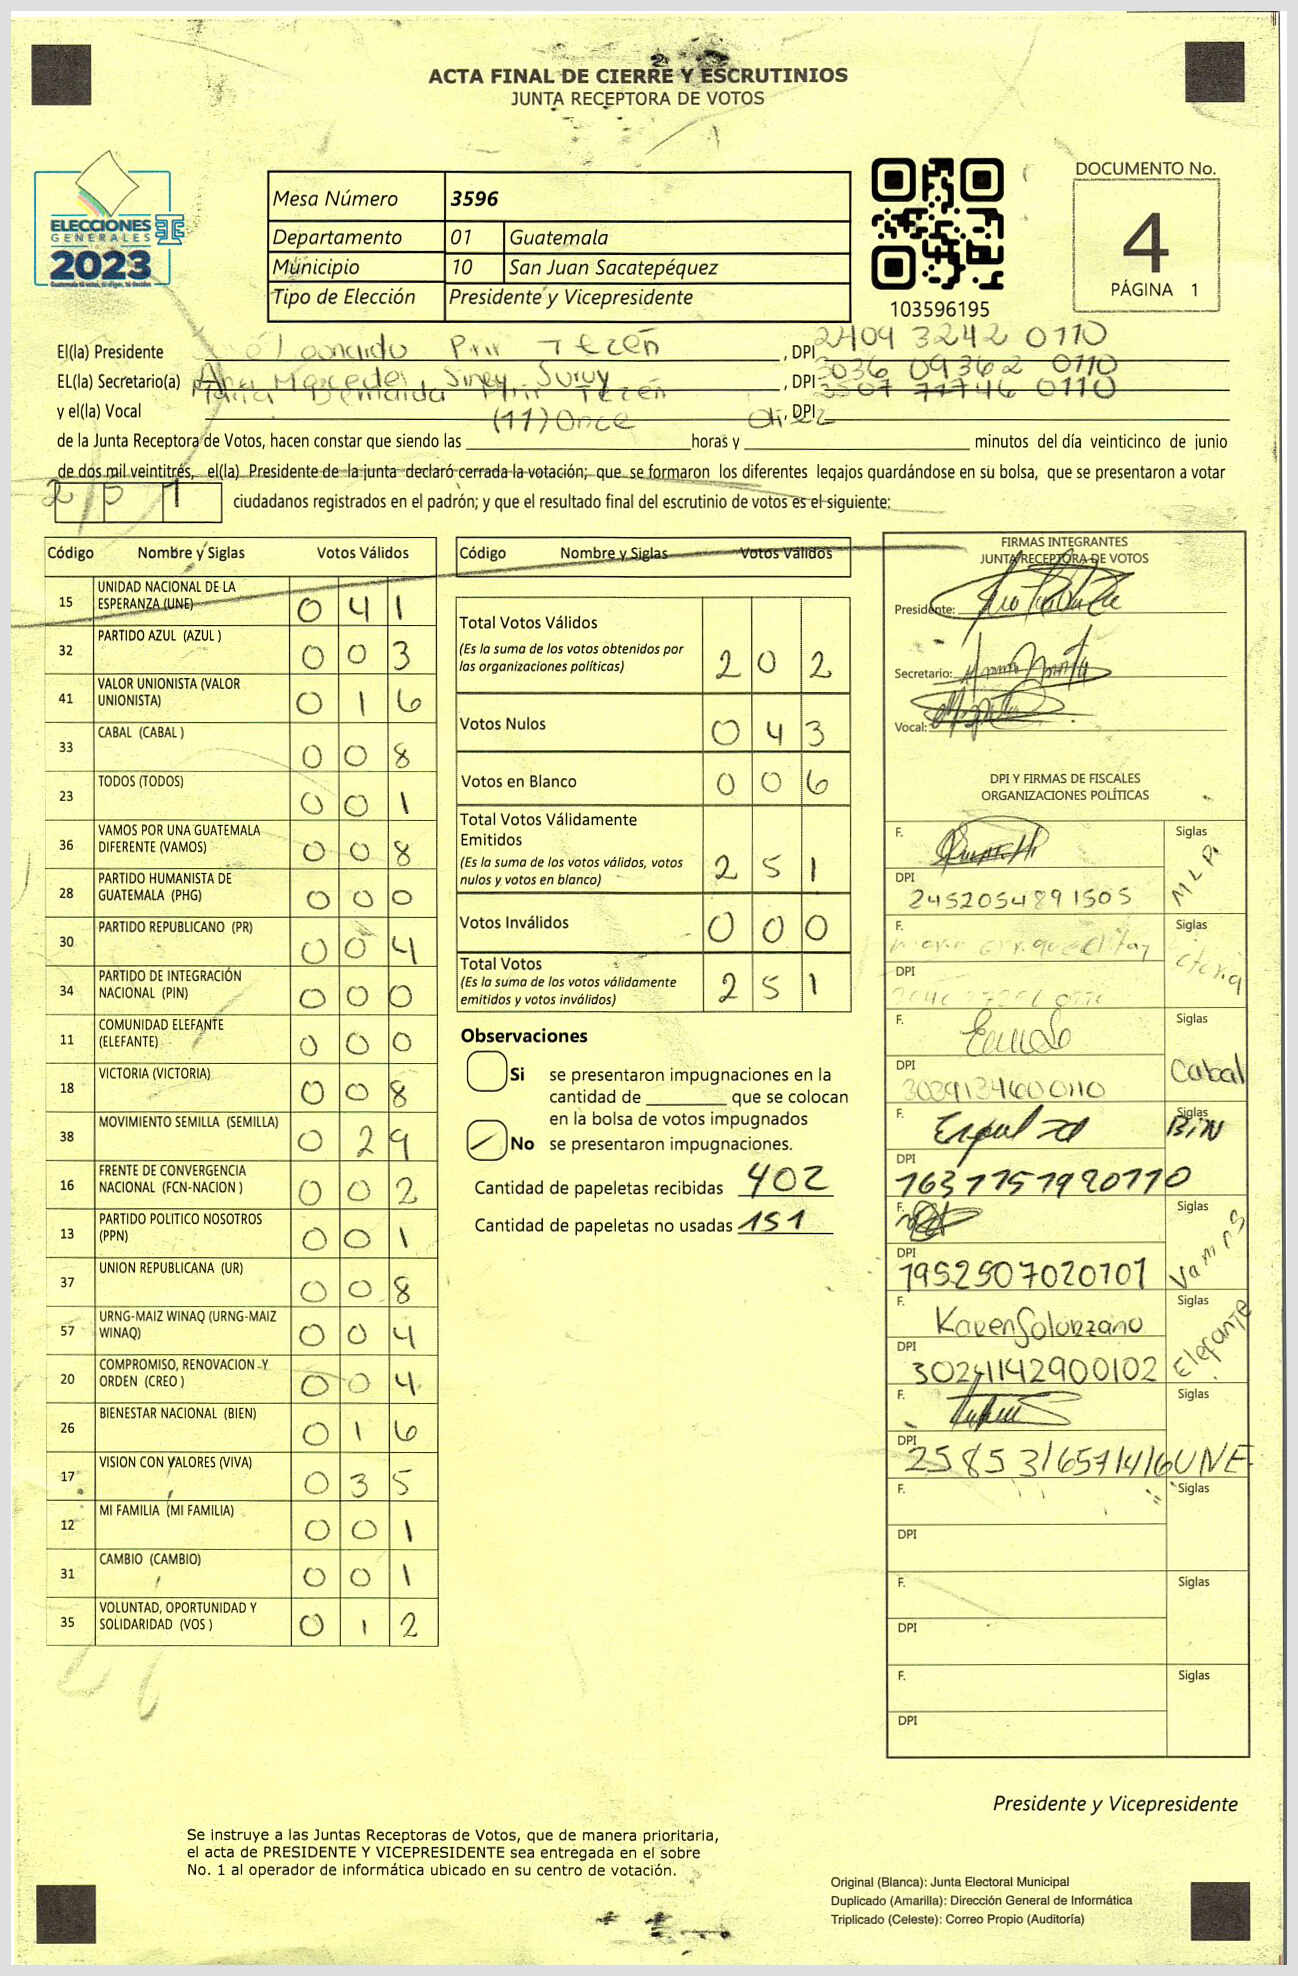 ACTA FINAL DE CIERRE Y ESCRUTINIOS
JUNTA RECEPTORA DE VOTOS
ELECCIONES
GENERALES
2023
Mesa Número 3596
Departamento 01 Guatemala
Municipio 10 San Juan Sacatepéquez
Tipo de Elección Presidente y Vicepresidente
103596195
DOCUMENTO No.
4
PÁGINA 1
El(la) Presidente Pirir Tezén , DPI 2409 3242 0110
EL(la) Secretario(a) Ana Mercedes Siney Suruy , DPI 3036 09362 0110
y el(la) Vocal Maria Bernarda Pirir Tezén , DPI 0110
de la Junta Receptora de Votos, hacen constar que siendo las (11) Once horas y diez minutos del día veinticinco de junio
de dos mil veintitrés, el(la) Presidente de la junta declaró cerrada la votación; que se formaron los diferentes legajos guardándose en su bolsa, que se presentaron a votar
251 ciudadanos registrados en el padrón; y que el resultado final del escrutinio de votos es el siguiente:
Código Nombre y Siglas Votos Válidos
15 UNIDAD NACIONAL DE LA ESPERANZA (UNE) 0 4 1
32 PARTIDO AZUL (AZUL ) 0 0 3
41 VALOR UNIONISTA (VALOR UNIONISTA) 0 1 6
33 CABAL (CABAL ) 0 0 8
23 TODOS (TODOS) 0 0 1
36 VAMOS POR UNA GUATEMALA DIFERENTE (VAMOS) 0 0 8
28 PARTIDO HUMANISTA DE GUATEMALA (PHG) 0 0 0
30 PARTIDO REPUBLICANO (PR) 0 0 4
34 PARTIDO DE INTEGRACIÓN NACIONAL (PIN) 0 0 0
11 COMUNIDAD ELEFANTE (ELEFANTE) 0 0 0
18 VICTORIA (VICTORIA) 0 0 8
38 MOVIMIENTO SEMILLA (SEMILLA) 0 2 9
16 FRENTE DE CONVERGENCIA NACIONAL (FCN-NACION ) 0 0 2
13 PARTIDO POLITICO NOSOTROS (PPN) 0 0 1
37 UNION REPUBLICANA (UR) 0 0 8
57 URNG-MAIZ WINAQ (URNG-MAIZ WINAQ) 0 0 4
20 COMPROMISO, RENOVACION Y ORDEN (CREO ) 0 0 4
26 BIENESTAR NACIONAL (BIEN) 0 1 6
17 VISION CON VALORES (VIVA) 0 3 5
12 MI FAMILIA (MI FAMILIA) 0 0 1
31 CAMBIO (CAMBIO) 0 0 1
35 VOLUNTAD, OPORTUNIDAD Y SOLIDARIDAD (VOS ) 0 1 2
Código Nombre y Siglas Votos Válidos
Total Votos Válidos 2 0 2
(Es la suma de los votos obtenidos por
las organizaciones políticas)
Votos Nulos 0 4 3
Votos en Blanco 0 0 6
Total Votos Válidamente
Emitidos
(Es la suma de los votos válidos, votos
nulos y votos en blanco) 2 5 1
Votos Inválidos 0 0 0
Total Votos
(Es la suma de los votos válidamente
emitidos y votos inválidos) 2 5 1
Observaciones
Si se presentaron impugnaciones en la
cantidad de ________ que se colocan
en la bolsa de votos impugnados
No se presentaron impugnaciones.
Cantidad de papeletas recibidas 402
Cantidad de papeletas no usadas 151
FIRMAS INTEGRANTES
JUNTA RECEPTORA DE VOTOS
Presidente:
Secretario:
Vocal:
DPI Y FIRMAS DE FISCALES
ORGANIZACIONES POLÍTICAS
F. Siglas M L P
DPI 2452054891505
F. Siglas
DPI
F. Siglas Cabal
DPI 3029134600110
F. Siglas BIN
DPI 1637757920110
F. Siglas Vamos
DPI 1952507020101
F. Karen Solorzano Siglas Elefante
DPI 30241142900102
F. Siglas UNE
DPI 2585316571416
F. Siglas
DPI
F. Siglas
DPI
F. Siglas
DPI
Presidente y Vicepresidente
Se instruye a las Juntas Receptoras de Votos, que de manera prioritaria,
el acta de PRESIDENTE Y VICEPRESIDENTE sea entregada en el sobre
No. 1 al operador de informática ubicado en su centro de votación.
Original (Blanca): Junta Electoral Municipal
Duplicado (Amarilla): Dirección General de Informática
Triplicado (Celeste): Correo Propio (Auditoría)